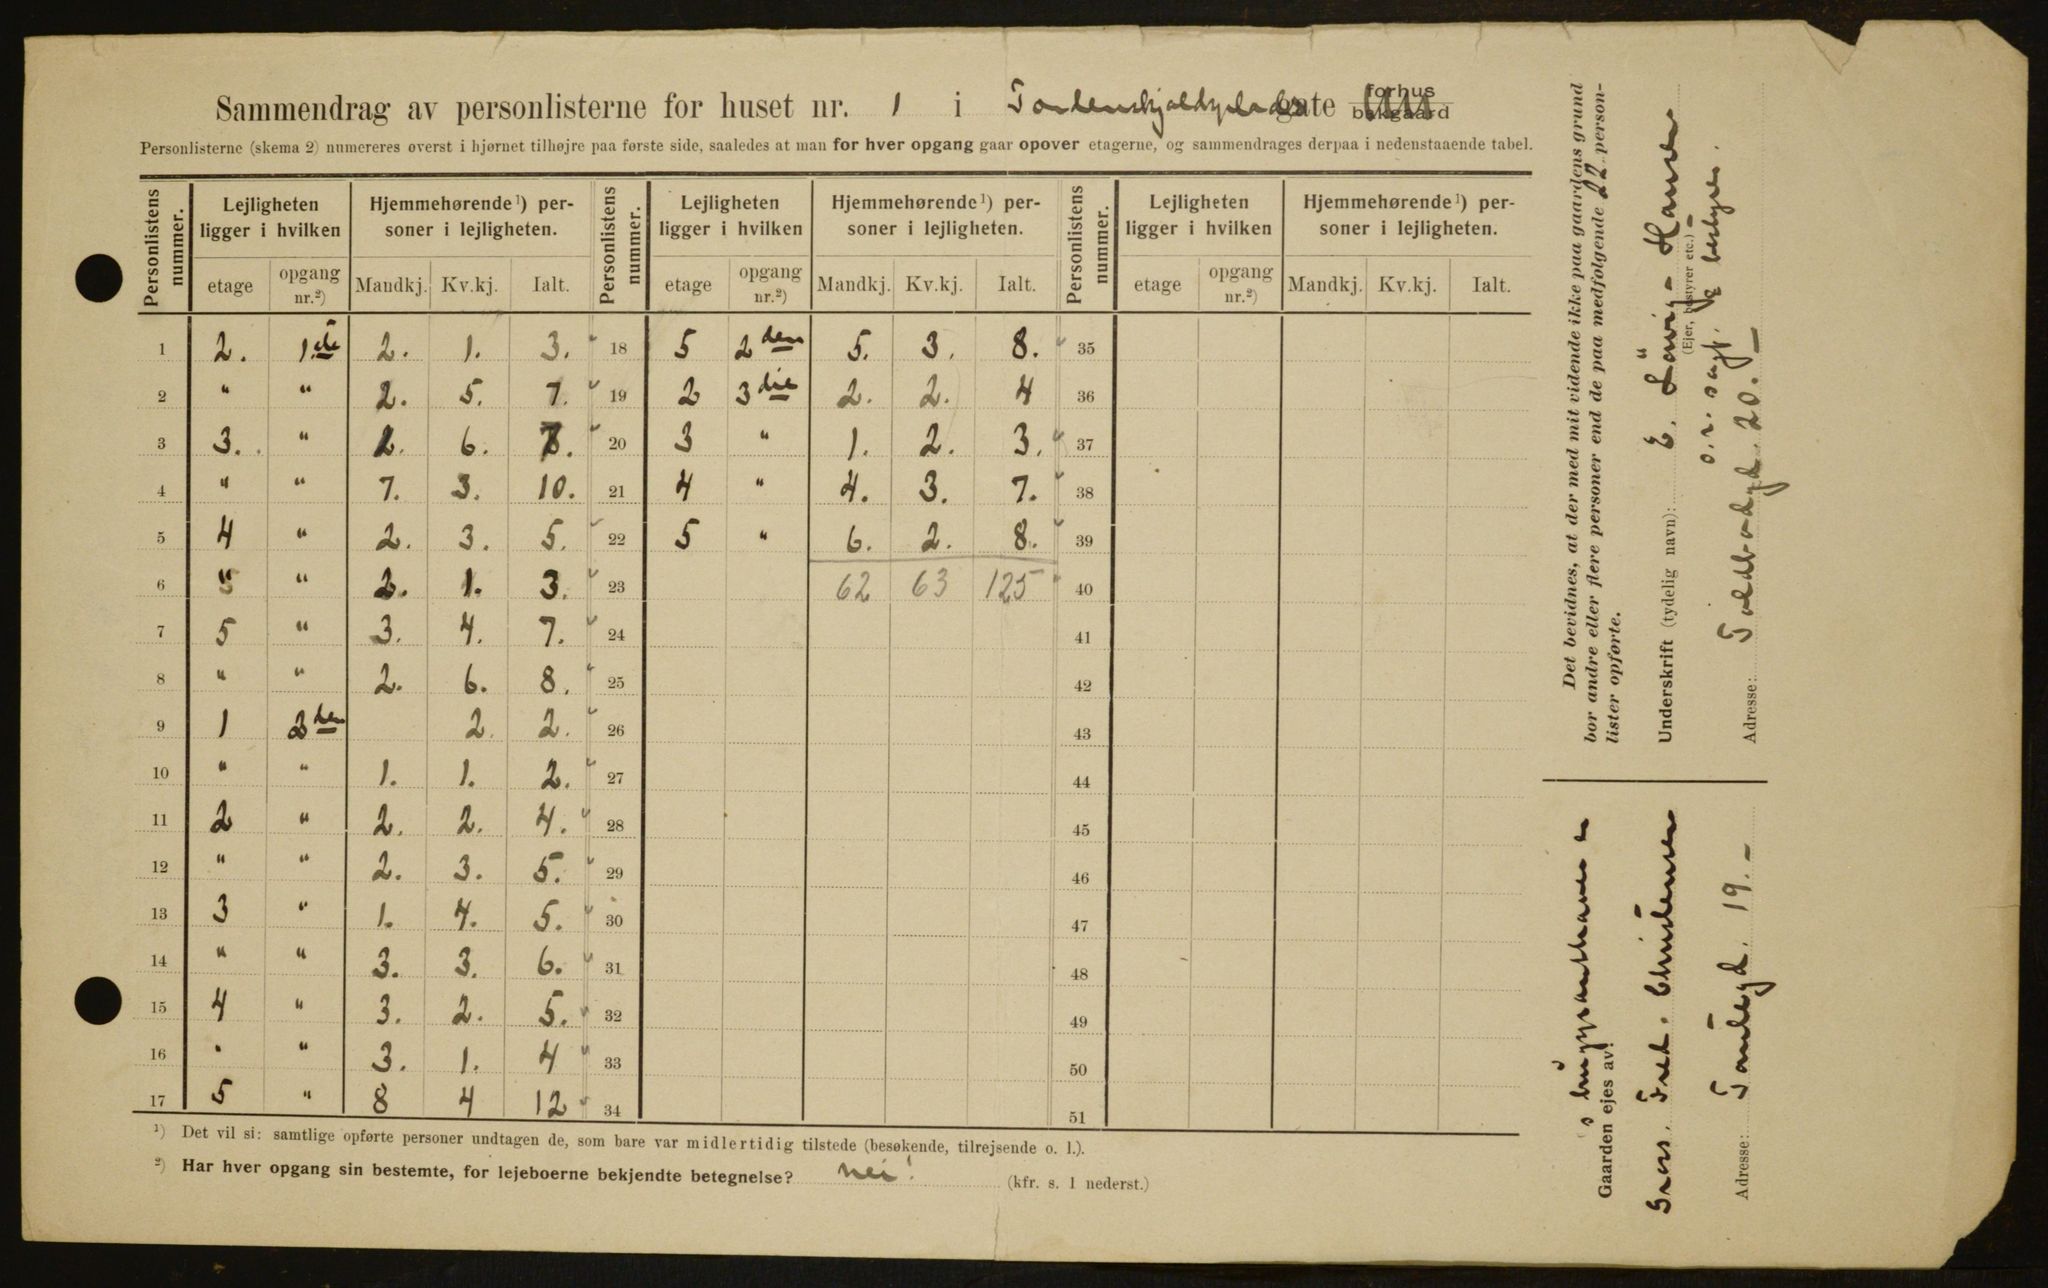 Sammendrag av personlisterne for huset nr. 1 i Tordenskjoldsplads gate forhus bakgaard
Personlisterne (skema 2) numereres øverst i hjørnet tilhøjre paa første side, saaledes at man for hver opgang gaar opover etagerne, og sammendrages derpaa i nedenstaaende tabel.
Personlistens nummer. Lejligheten ligger i hvilken Hjemmehørende ¹) personer i lejligheten. Personlistens nummer. Lejligheten ligger i hvilken Hjemmehørende ¹) personer i lejligheten. Personlistens nummer. Lejligheten ligger i hvilken Hjemmehørende ¹) personer i lejligheten.
etage opgang nr.²) Mandkj. Kv.kj. Ialt. etage opgang nr.²) Mandkj. Kv.kj. Ialt. etage opgang nr.²) Mandkj. Kv.kj. Ialt.
1 2. 1.ste 2. 1. 3. 18 5 2den 5. 3. 8. 35
2 " " 2. 5. 7. 19 2 3die 2. 2. 4 36
3 3. " 6. 20 3 " 1. 2. 3. 37
4 " " 7. 3. 10. 21 4 " 4. 3. 7. 38
5 4 " 2. 3. 5. 22 5 " 6. 2. 8. 39
6 " " 2. 1. 3. 23 62 63 125 40
7 5 " 3. 4. 7. 24 41
8 " " 2. 6. 8. 25 42
9 1 2den 2. 2. 26 43
10 " " 1. 1. 2. 27 44
11 2 " 2. 2. 4. 28 45
12 " " 2. 3. 5. 29 46
13 3 " 1. 4. 5. 30 47
14 " " 3. 3. 6. 31 48
15 4 " 3. 2. 5. 32 49
16 " " 3. 1. 4 33 50
17 5 " 8 4 12 34 51
¹) Det vil si: samtlige opførte personer undtagen de, som bare var midlertidig tilstede (besøkende, tilrejsende o. l.).
²) Har hver opgang sin bestemte, for lejeboerne bekjendte betegnelse? nei! (kfr. s. 1 nederst.)
Det bevidnes, at der med mit vidende ikke paa gaardens grund
bor andre eller flere personer end de paa medfølgende 22 person-
lister opførte.
Underskrift (tydelig navn): E. Lövig-Hansen
(Ejer, bestyrer etc.)
o.r. sagf. & bestyrer.
Adresse: Toldbodgd. 20.
Gaarden ejes av:
Gross. Fred. Christensen
Adresse: 19.-